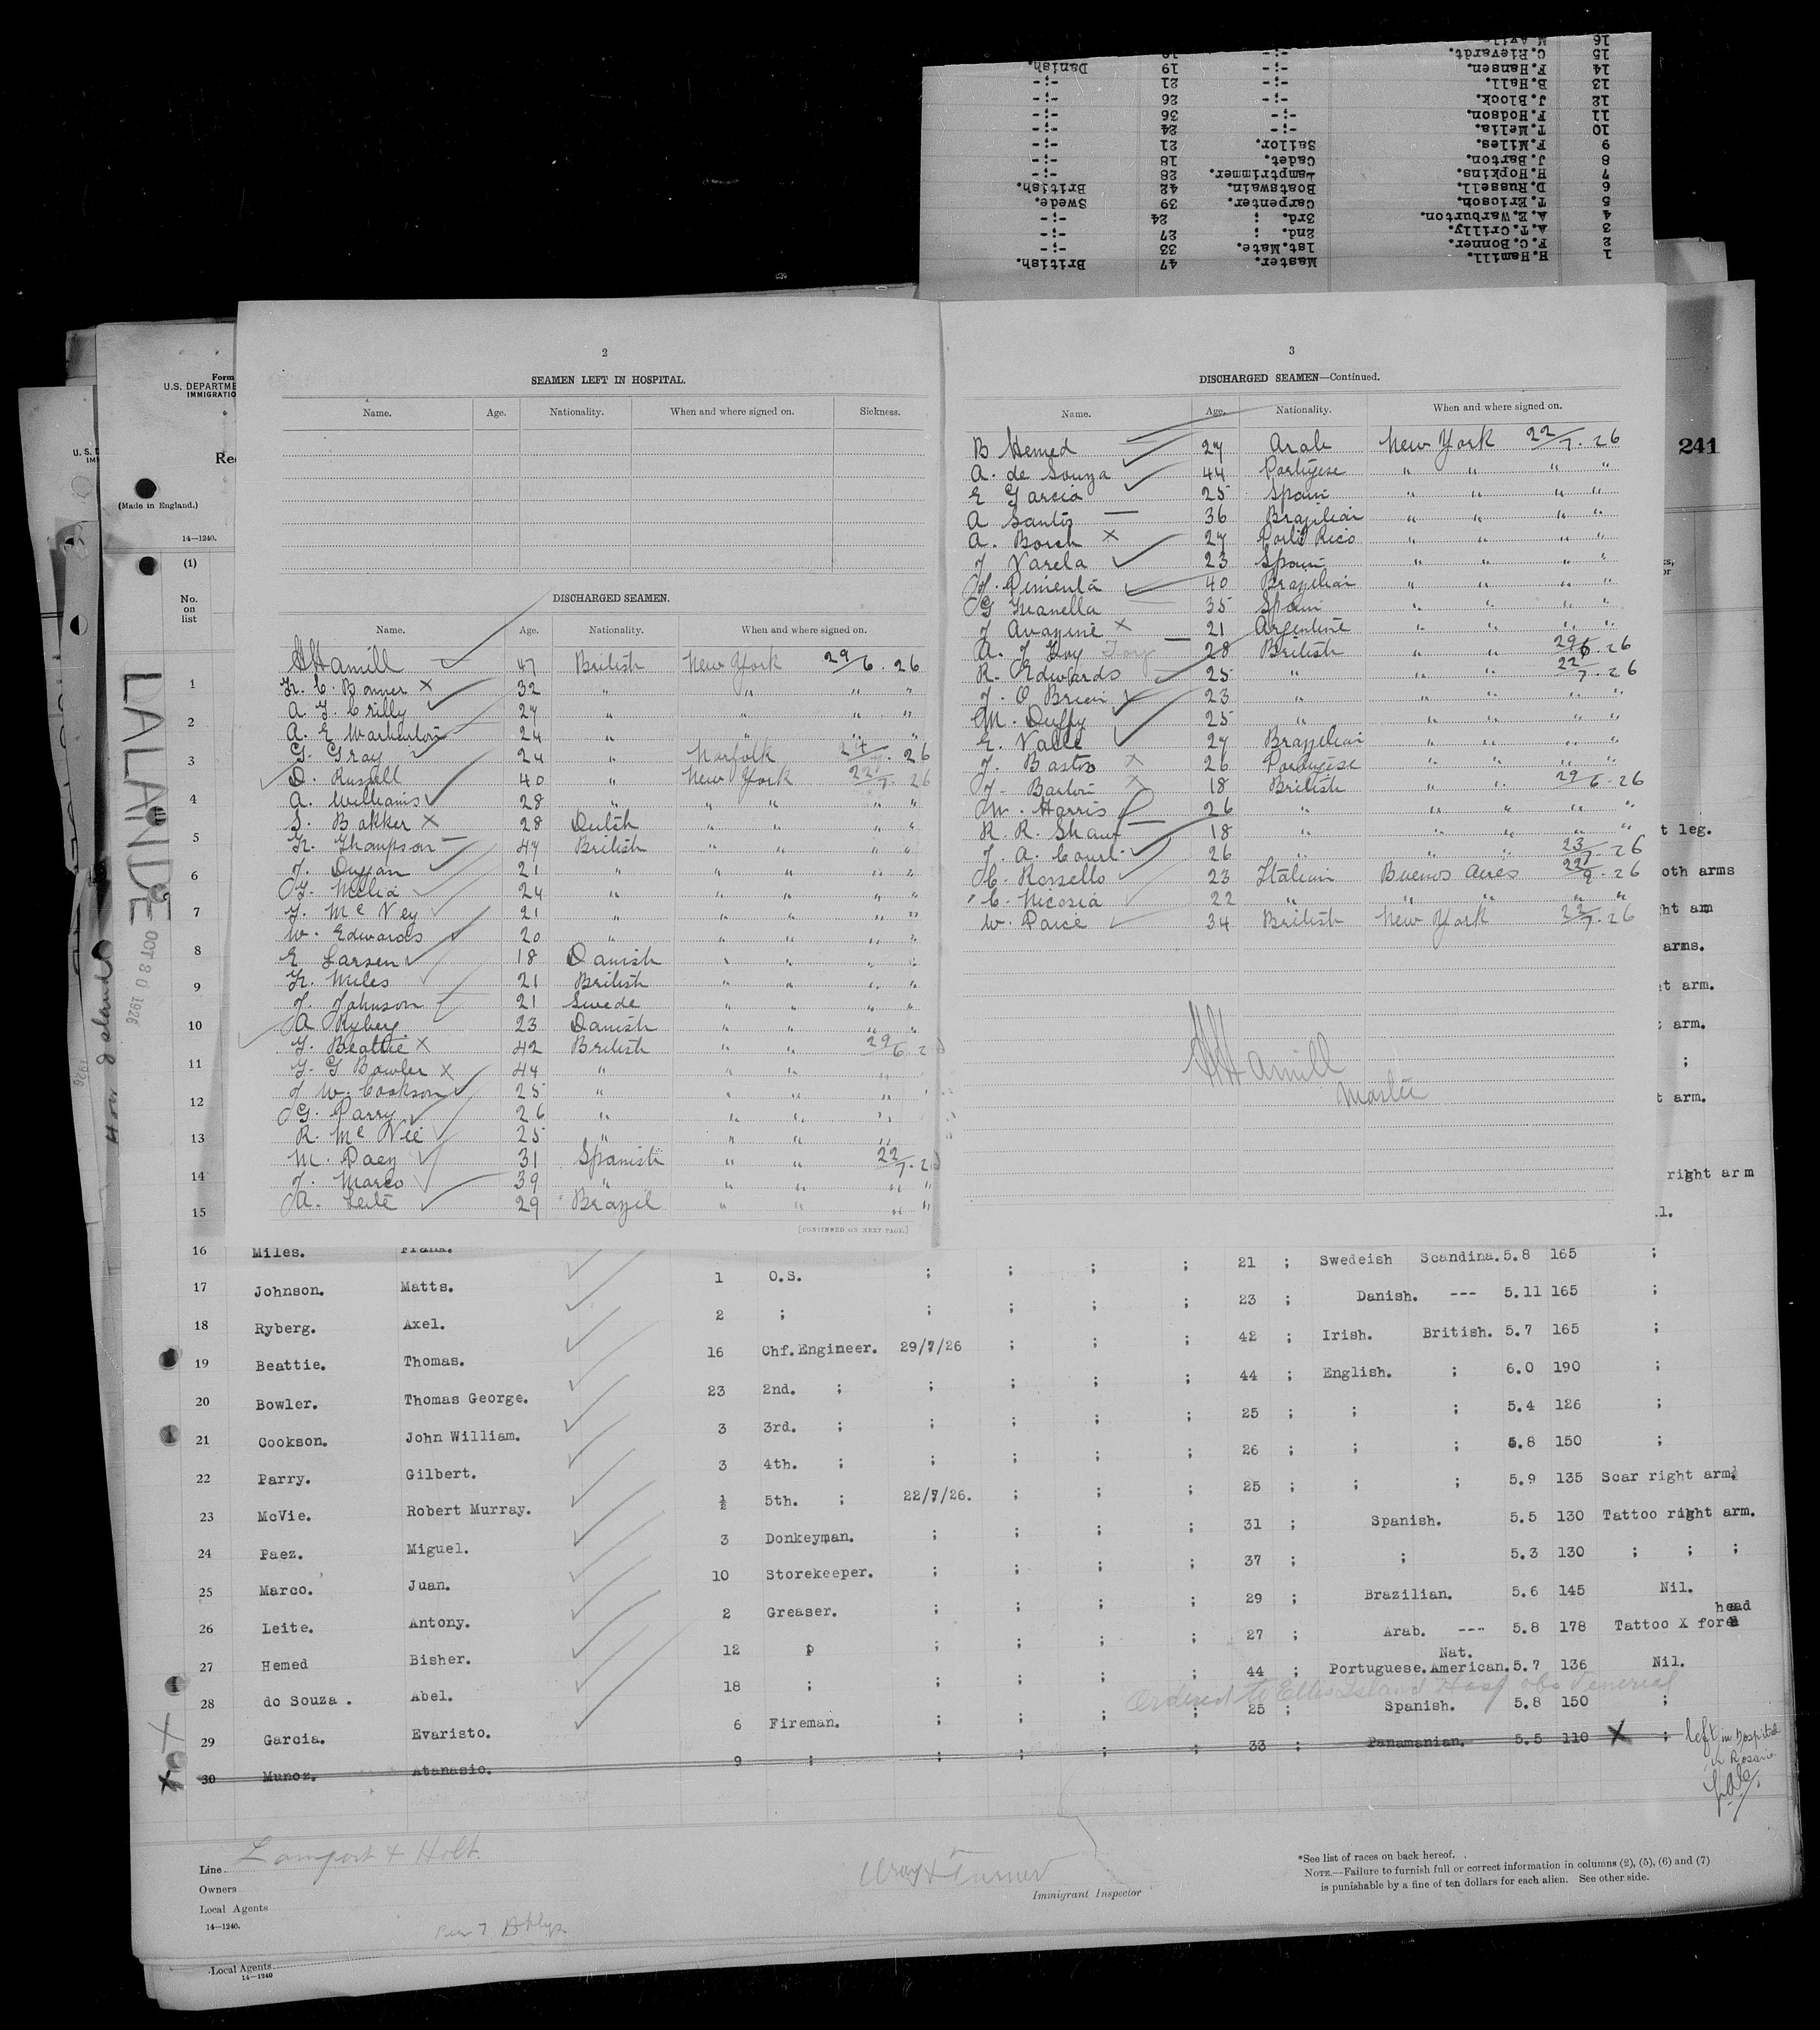 16
15 C. Rievardt. -:-
14 F. Hansen. -:- 19 Danish.
13 B. Hall. -:- 21 -:-
12 J. Block. -:- 26 -:-
11 F. Hodson. -:- 36 -:-
10 T. Melia. -:- 24 -:-
9 F. Miles. Sailor. 21 -:-
8 J. Barton. Cadet. 18 -:-
7 H. Hopkins. Lamptrimmer. 28 -:-
6 D. Russell. Boatswain. 42 British.
5 T. Ericson. Carpenter. 39 Swede.
4 A. E. Warburton. 3rd. ; 24 -:-
3 A. T. Crilly. 2nd. ; 27 -:-
2 F. C. Bonner. 1st. Mate. 33 -:-
1 H. Hamill. Master. 47 British.
2
SEAMEN LEFT IN HOSPITAL.
Name. Age. Nationality. When and where signed on. Sickness.
DISCHARGED SEAMEN.
Name. Age. Nationality. When and where signed on.
H Hamill 47 British New York 29/6. 26
Fr. C. Bonner X 32 " " " "
A T. Crilly 27 " " " "
A. E Warburton 24 " " " "
G. Gray 24 " Norfolk 26
D. Russell 40 " New York 22/7. 26
A. Williams 28 " " " " "
S. Bakker X 28 Dutch " " " "
Fr. Thompson 47 British " " " "
J. Duggan 21 " " " " "
T. Melia 24 " " " " "
J. Mc Vey 21 " " " " "
W. Edwards 20 " " " " "
E Larsen 18 Danish " " " "
Fr. Miles 21 British " " " "
J. Johnson 21 Swede " " " "
A Ryberg 23 Danish " " " "
T. Beattie X 42 British " " 29/6. 2
T. G Bowler X 44 " " " "
J W. Cookson 25 " " " "
G. Parry 26 " " " "
R. Mc Vie 25 " " " "
M. Paez 31 Spanish " " 22/7. 2
J. Marco 39 " " " " "
A. Leite 29 Brazil " " " "
[CONTINUED ON NEXT PAGE.]
3
DISCHARGED SEAMEN—Continued.
Name. Age. Nationality. When and where signed on.
B Hemed 27 Arab New York 22/7. 26
A. de Souza 44 Portugese " " " "
E Garcia 25 Spain " " " "
A Santos 36 Brazilian " " " "
A. Borch X 27 Porto Rico " " " "
J Varela 23 Spain " " " "
J. Pimenta 40 Brazilian " " " "
G Granella 35 Spain " " " "
J X 21 Argentine " " " "
A. J Foy Foy 28 British " " 29/6. 26
R. Edwards 25 " " " 22/7. 26
J. O Brien 23 " " " " "
M. Duffy 25 " " " " "
E. Valle 27 Brazilian " " " "
J. Bastos X 26 Portugese " " " "
J. Barton X 18 British " " 29/6. 26
W. Harris 26 " " " " "
R. R. Shaw 18 " " " " "
J. A. Court 26 " " " 23/7. 26
C. Rossello 23 Italian Buenos Aires 26
C. Nicosia 22 " " " " "
W. Paice 34 British New York 22/7. 26
H Hamill
Master
241
Form
U.S. DEPARTME
IMMIGRATIO
Rec
(Made in England.)
14—1240.
(1)
No.
on
list
LALANDE
OCT 20 1926
1
2
3
4
5
6
7
8
9
10
11
12
13
14
15
t leg.
oth arms
ht arm
arms.
t arm.
t arm.
;
t arm.
right arm
16 Miles. Frank.
17 Johnson. Matts. 1 O.S. ; ; ; ; 21 ; Swedeish Scandina. 5.8 165 ;
18 Ryberg. Axel. 2 ; ; ; ; ; 23 ; Danish. --- 5.11 165 ;
19 Beattie. Thomas. 16 Chf. Engineer. 29/7/26 ; ; ; 42 ; Irish. British. 5.7 165 ;
20 Bowler. Thomas George. 23 2nd. ; ; ; ; ; 44 ; English. ; 6.0 190 ;
21 Cookson. John William. 3 3rd. ; ; ; ; ; 25 ; ; ; 5.4 126 ;
22 Parry. Gilbert. 3 4th. ; ; ; ; ; 26 ; ; ; 5.8 150 ;
23 McVie. Robert Murray. ½ 5th. ; 22/7/26. ; ; ; 25 ; ; ; 5.9 135 Scar right arm.
24 Paez. Miguel. 3 Donkeyman. ; ; ; ; 31 ; Spanish. 5.5 130 Tattoo right arm.
25 Marco. Juan. 10 Storekeeper. ; ; ; ; 37 ; ; 5.3 130 ; ; ;
26 Leite. Antony. 2 Greaser. ; ; ; ; 29 ; Brazilian. 5.6 145 Nil.
27 Hemed Bisher. 12 p ; ; ; ; 27 ; Arab. --- 5.8 178 Tattoo X fore head
28 do Souza . Abel. 18 ; ; ; ; ; 44 ; Portuguese. Nat. American. 5.7 136 Nil.
Ordered to Ellis Island Hosp obs Venereal
29 Garcia. Evaristo. 6 Fireman. ; ; ; ; 25 ; Spanish. 5.8 150 ;
30 Munoz. Atanasio. 9 ; ; ; ; ; 33 ; Panamanian. 5.5 110 X ; left in hospital in Rosario
Line Lamport & Holt.
Owners
Local Agents
14—1240.
Pier 7 Bklyn
Turner
Immigrant Inspector
*See list of races on back hereof.
NOTE.—Failure to furnish full or correct information in columns (2), (5), (6) and (7)
is punishable by a fine of ten dollars for each alien. See other side.
Local Agents
14—1240